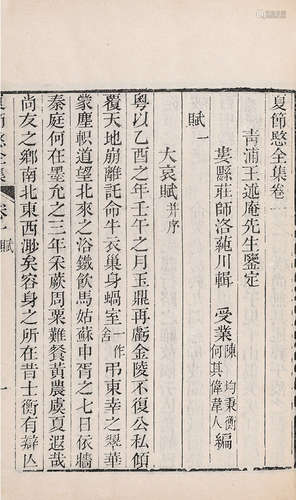 夏節愍全集卷一
青浦王述庵先生鑒定
婁縣莊師洛蒓川輯
受業 陳均秉衡 何其偉韋人 編
賦一
大哀賦 并序
粵以乙酉之年壬午之月玉鼎再虧金陵不復公私傾
覆天地崩離託命牛衣巢身蝸室 一作舍 弔東幸之翠華
蒙塵軹道望北來之浴鐵飲馬姑蘇申胥之七日依牆
秦庭何在墨允之三年采蕨周粟難餐黃農虞夏遐哉
尚友之鄉南北東西渺矣容身之所在昔士衡有辯亡
夏節愍全集
卷一 賦
一